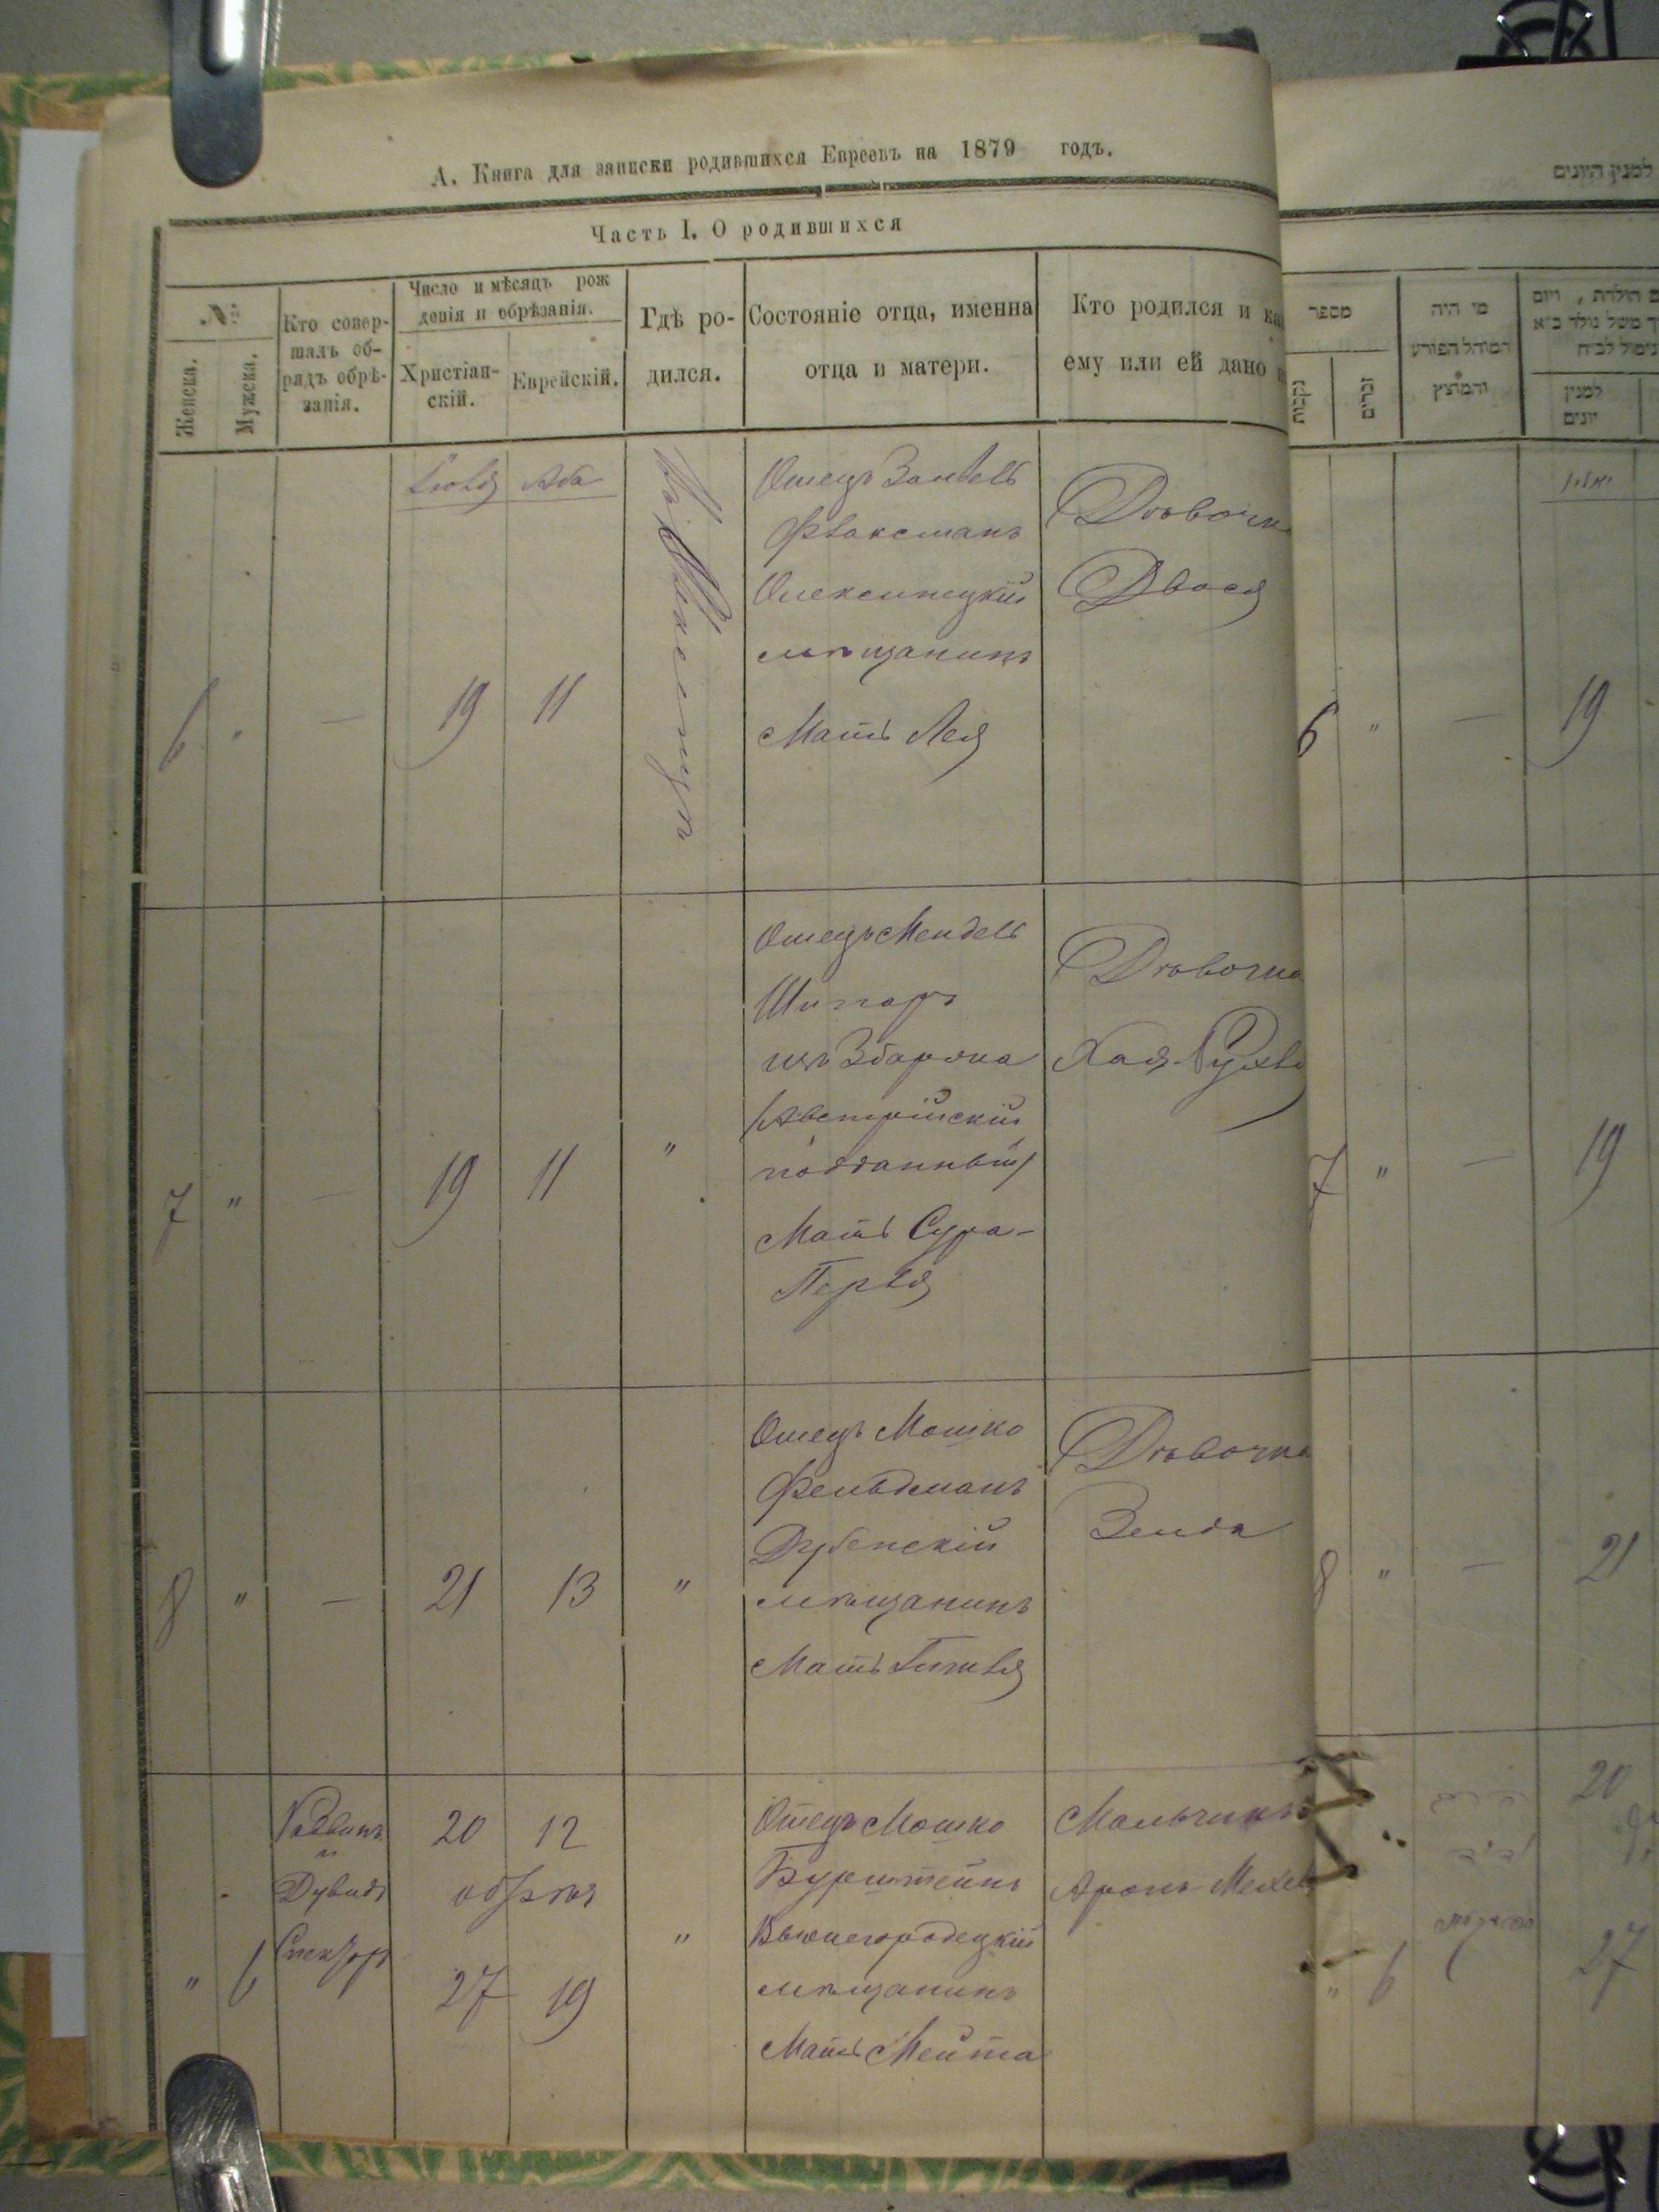 А. Книга для записки родившихся Евреевъ на 1879 годъ.
למנין היונים
Часть I. О родившихся
№
Женска.
Мужска.
Кто совер-
шалъ об-
рядъ обрѣ-
занія.
Число и мѣсяцъ рож
денія и обрѣзанія.
Христіан-
скій.
Еврейскій.
Гдѣ ро-
дился.
Состояніе отца, именна
отца и матери.
Кто родился и ка
ему или ей дано
מספר
נקבות
זכרים
מי היה
המוהל הפורע
והמוצץ
למנין
יונים
Іюля Аба
Отецъ Занвель
Флаксманъ
Олексинецкій
мѣщанинъ
Мать Лея
Дѣвочка
Двося
6 " — 19 11
6 " — 19
Отецъ Мендель
Шпаръ
изъ Збаража
/Австрійскій
подданный/
Мать Сура-
Перля
Дѣвочка
Хая-Рухля
7 " — 19 11 "
7 " — 19
Отецъ Мошко
Фельдманъ
Дубенскій
мѣщанинъ
Мать Гитля
Дѣвочка
Зелда
8 " — 21 13 "
8 " — 21
Дувидъ
20 12
обрѣз
27 19
" 6 "
Отецъ Мошко
Бурштейнъ
Вышегородецкій
мѣщанинъ
Мать Мейта
Мальчикъ
Аронъ-Мехел
20
" 6 27